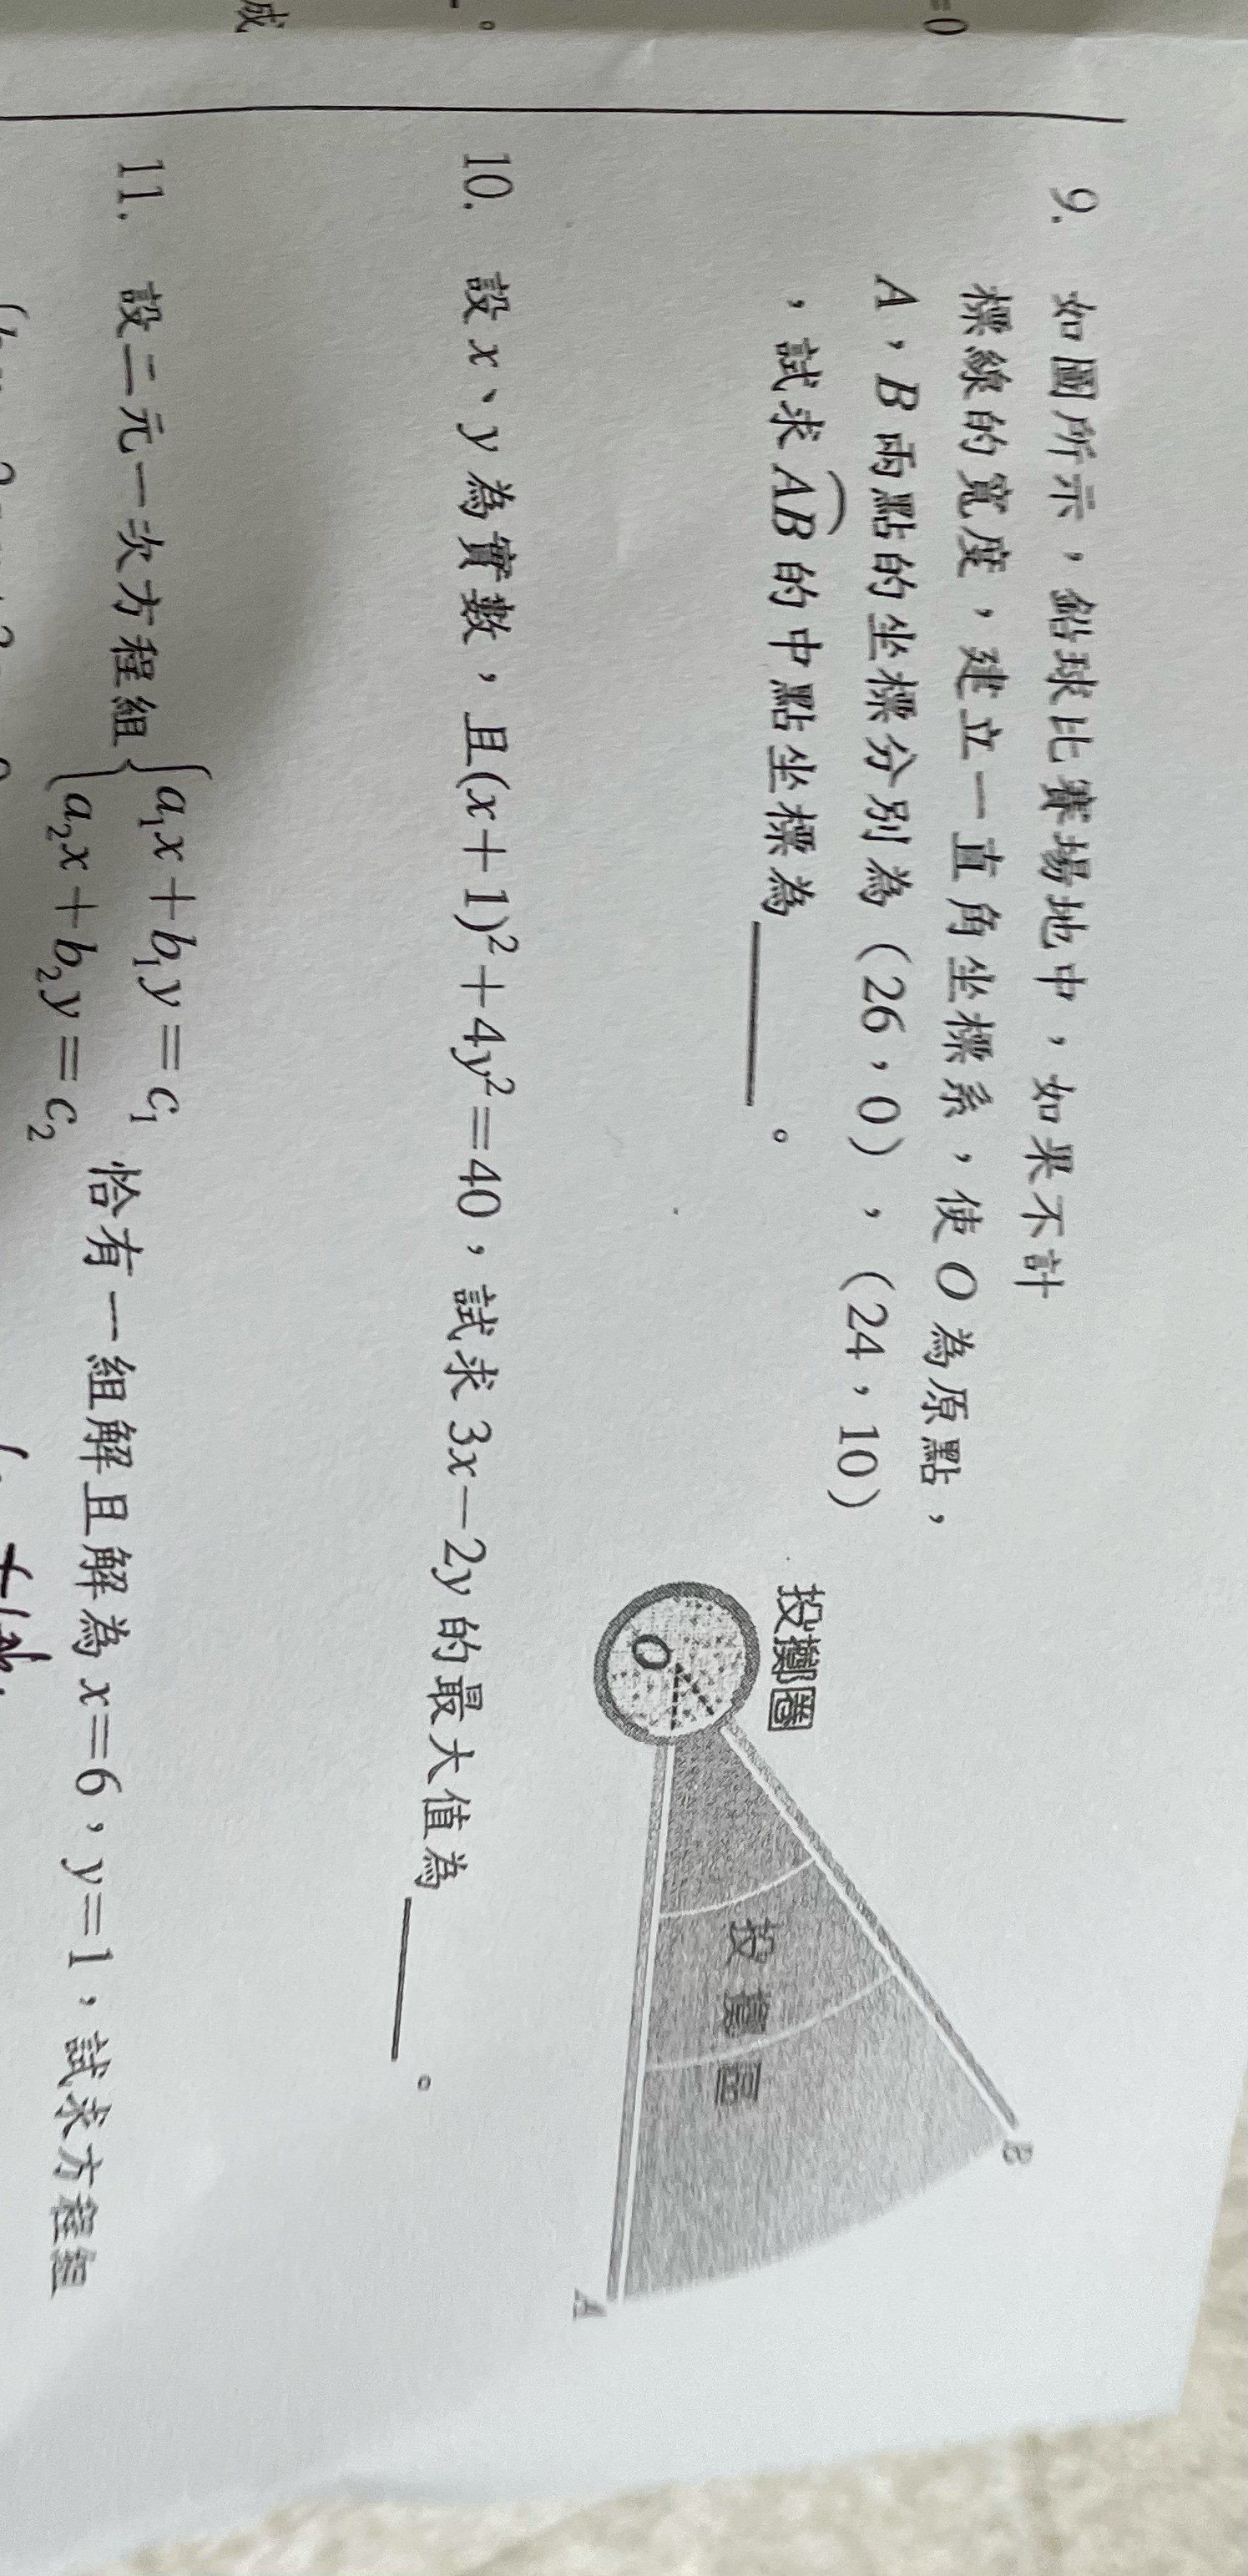 =0
。
成
9. 如圖所示，鉛球比賽場地中，如果不計
標線的寬度，建立一直角坐標系，使 O 為原點，
A，B 兩點的坐標分別為（26，0），（24，10）
，試求 AB 的中點坐標為＿＿＿。
投擲圈
O
投擲區
B
A
10. 設 x、y 為實數，且(x+1)²+4y²=40，試求 3x−2y 的最大值為＿＿＿。
11. 設二元一次方程組{a₁x+b₁y=c₁
a₂x+b₂y=c₂ 恰有一組解且解為 x=6，y=1，試求方程組